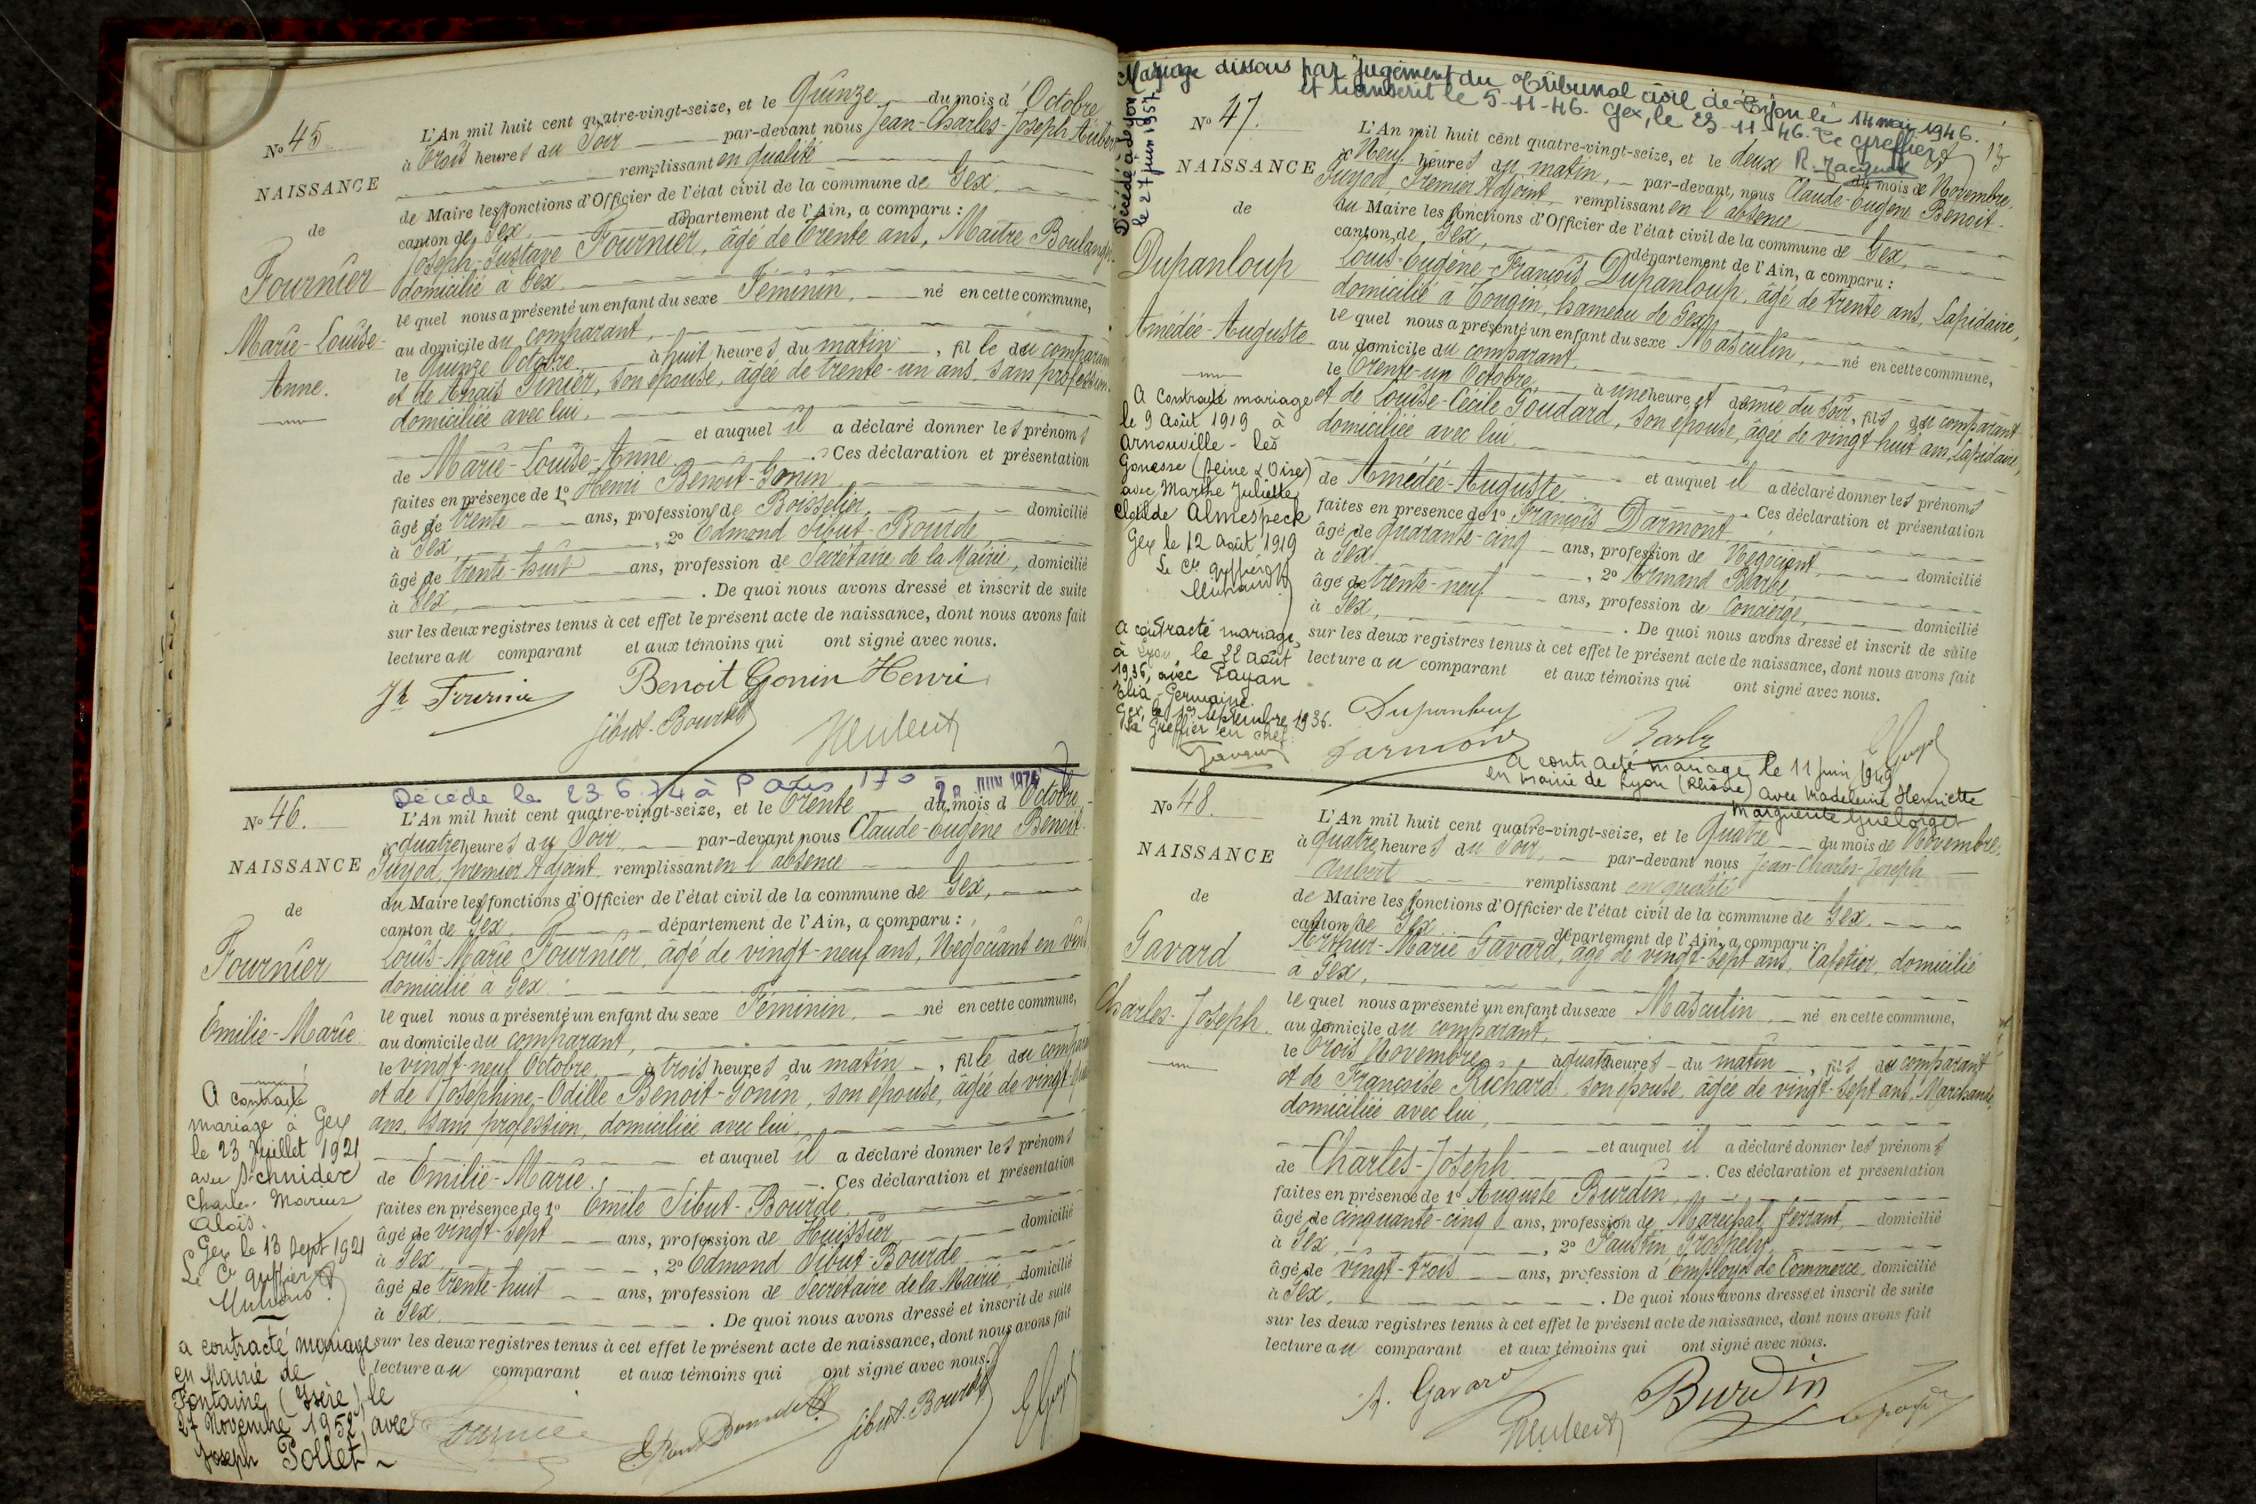 N° 45
NAISSANCE
de
Fournier
Marie-Louise-
Anne.
L'An mil huit cent quatre-vingt-seize, et le Quinze du mois d'Octobre
à trois heures du Soir par-devant nous Jean-Charles-Joseph Aubert
remplissant en qualité
de Maire les fonctions d'Officier de l'état civil de la commune de Gex,
canton de Gex, département de l'Ain, a comparu :
Joseph-Gustave Fournier, âgé de trente ans, Maître Boulanger
domicilié à Gex
lequel nous a présenté un enfant du sexe Féminin, né en cette commune,
au domicile du comparant,
le Quinze Octobre à huit heures du matin, fille du comparant
et de Anaïs Pinier, son épouse, âgée de trente-un ans, sans profession,
domiciliée avec lui,
et auquel il a déclaré donner les prénoms
de Marie-Louise-Anne. Ces déclaration et présentation
faites en présence de 1° Henri Benoit-Gonin
âgé de trente ans, profession de Boisselier, domicilié
à Gex, 2° Edmond Sibut-Bourde
âgé de trente-huit ans, profession de Secrétaire de la Mairie, domicilié
à Gex, . De quoi nous avons dressé et inscrit de suite
sur les deux registres tenus à cet effet le présent acte de naissance, dont nous avons fait
lecture au comparant et aux témoins qui ont signé avec nous.
Jh Fournier Benoit Gonin Henri
Sibut-Bourde
Décédé le 23.6.74 à Paris 17e
JUIN 1974
N° 46.
NAISSANCE
de
Fournier
Emilie-Marie
A contracté
mariage à Gex
le 23 Juillet 1921
avec Schnider
Charles Marcus
Aloïs.
Gex le 13 Sept 1921
Le Cis greffier
a contracté mariage
en Mairie de
Fontaine (Isère) le
27 Novembre 1952 avec
Joseph Pollet
L'An mil huit cent quatre-vingt-seize, et le trente du mois d'Octobre,
à quatre heures du Soir, par-devant nous Claude-Eugène Benoit-
Gurgod, premier Adjoint remplissant en l'absence
du Maire les fonctions d'Officier de l'état civil de la commune de Gex,
canton de Gex département de l'Ain, a comparu :
Louis-Marie Fournier, âgé de vingt-neuf ans, Négociant en vins
domicilié à Gex
lequel nous a présenté un enfant du sexe Féminin, né en cette commune,
au domicile du comparant,
le vingt-neuf Octobre, à trois heures du matin, fille du comparant
et de Joséphine-Odille Benoit-Gonin, son épouse, âgée de vingt-
ans, sans profession, domiciliée avec lui,
et auquel il a déclaré donner les prénoms
de Emilie-Marie. Ces déclaration et présentation
faites en présence de 1° Emile Sibut-Bourde,
âgé de vingt-sept ans, profession de Huissier domicilié
à Gex, 2° Edmond Sibut-Bourde
âgé de trente-huit ans, profession de Secrétaire de la Mairie domicilié
à Gex . De quoi nous avons dressé et inscrit de suite
sur les deux registres tenus à cet effet le présent acte de naissance, dont nous avons fait
lecture au comparant et aux témoins qui ont signé avec nous.
Fournier Sibut-Bourde
Mariage dissous par Jugement du Tribunal civil de le 14 mai 1946.
et transcrit le 5-11-46. Gex, le 23-11-46. Le Greffier
R. Jacquet
Décédé à Lyon
le 27 juin 1957
N° 47.
NAISSANCE
de
Dupanloup
Amédée-Auguste
A contracté mariage
le 9 Août 1919 à
Arnouville-les
Gonesse (Seine & Oise)
avec Marthe Juliette
Clotilde Almespeck
Gex le 12 Août 1919
Le Cis greffier
A contracté mariage
à Lyon, le 22 août
1936, avec Payan
Elia Germaine.
Gex, le 1er septembre 1936.
Le Greffier en chef
L'An mil huit cent quatre-vingt-seize, et le deux du mois de Novembre,
à Neuf heures du matin, par-devant nous Claude-Eugène Benoit-
Gurgod, Premier Adjoint, remplissant en l'absence
du Maire les fonctions d'Officier de l'état civil de la commune de Gex,
canton de Gex, département de l'Ain, a comparu :
Louis-Eugène-François Dupanloup, âgé de trente ans, Lapidaire,
domicilié à Tougin, hameau de Gex,
lequel nous a présenté un enfant du sexe Masculin, né en cette commune,
au domicile du comparant.
le trente-un Octobre, à une heure et demie du soir, fils du comparant
et de Louise-Cécile Goudard, son épouse, âgée de vingt huit ans, Lapidaire,
domiciliée avec lui
et auquel il a déclaré donner les prénoms
de Amédée-Auguste. Ces déclaration et présentation
faites en présence de 1° François Darmont,
âgé de quarante-cinq ans, profession de Négociant, domicilié
à Gex, 2° Armand Barbe,
âgé de trente-neuf ans, profession de Concierge, domicilié
à Gex, . De quoi nous avons dressé et inscrit de suite
sur les deux registres tenus à cet effet le présent acte de naissance, dont nous avons fait
lecture au comparant et aux témoins qui ont signé avec nous.
Dupanloup
Darmont Barbe
A contracté mariage le 11 juin 1949
en Mairie de Lyon (Rhône) avec Madeleine Henriette
Marguerite Guelorget
N° 48.
NAISSANCE
de
Gavard
Charles-Joseph.
L'An mil huit cent quatre-vingt-seize, et le Quatre du mois de Novembre,
à quatre heures du Soir, par-devant nous Jean-Charles-Joseph
Aubert remplissant en qualité
de Maire les fonctions d'Officier de l'état civil de la commune de Gex.
canton de Gex département de l'Ain, a comparu :
Arthur-Marie Gavard, âgé de vingt-sept ans, Cafetier, domicilié
à Gex,
lequel nous a présenté un enfant du sexe Masculin, né en cette commune,
au domicile du comparant,
le trois Novembre, à quatre heures du matin, fils du comparant
et de Françoise Richard, son épouse, âgée de vingt-sept ans, Marchande,
domiciliée avec lui,
et auquel il a déclaré donner les prénoms
de Charles-Joseph. Ces déclaration et présentation
faites en présence de 1° Auguste Burdin,
âgé de cinquante-cinq ans, profession de Maréchal ferrant, domicilié
à Gex, 2° Faustin
âgé de vingt-trois ans, profession d'employé de Commerce, domicilié
à Gex, . De quoi nous avons dressé et inscrit de suite
sur les deux registres tenus à cet effet le présent acte de naissance, dont nous avons fait
lecture au comparant et aux témoins qui ont signé avec nous.
A. Gavard Burdin